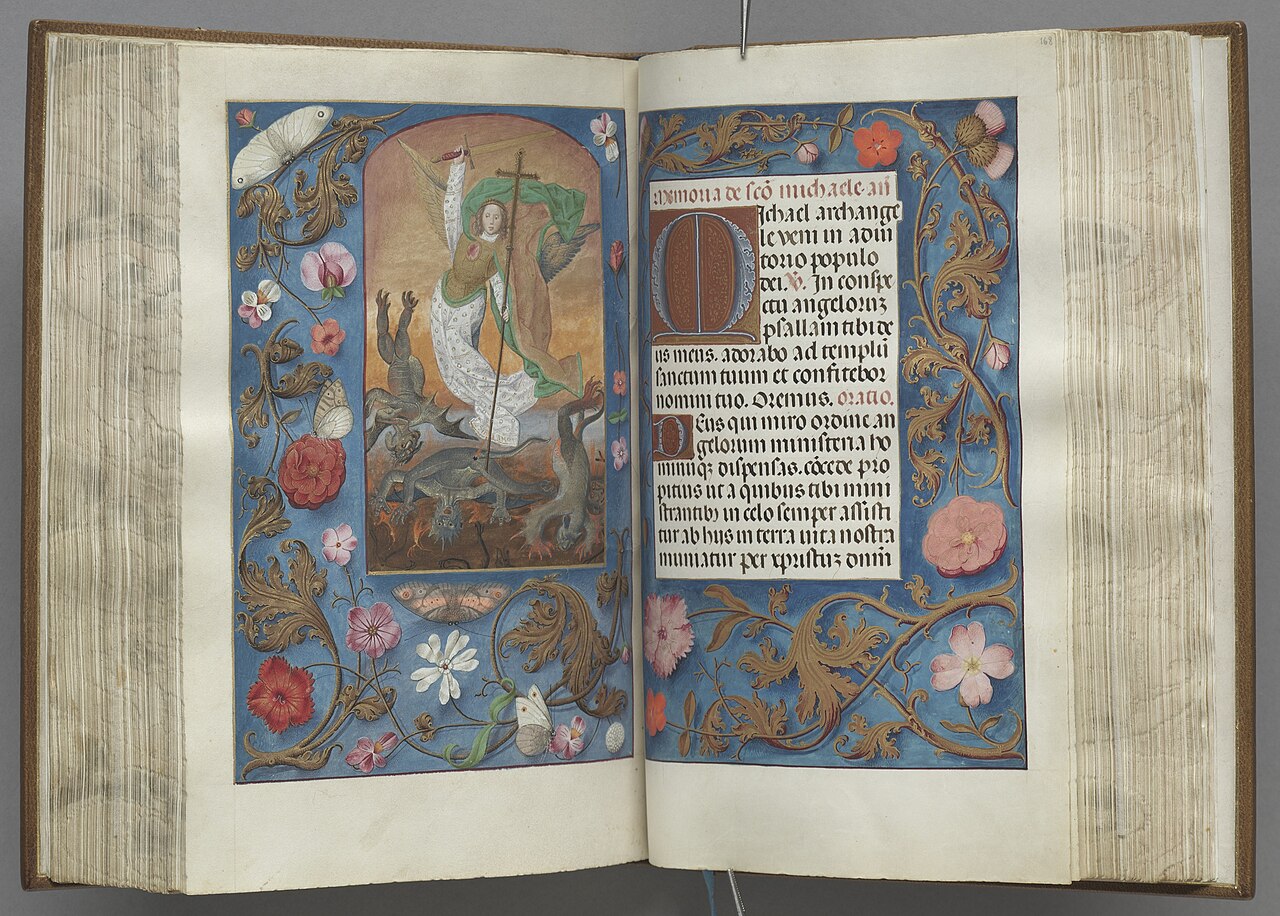 168
Memoria de scō michaele arī
Michael archange
le veni in adiu
torio populo
dei. V. In conspe
ctu angelorum
psallam tibi de
us meus. adorabo ad templū
sanctum tuum et confitebor
nomini tuo. Oremus. oratio.
Deus qui miro ordine an
gelorum ministeria ho
minūqꝫ dispensas. cōcede pro
pitius ut a quibus tibi mini
strantibꝫ in celo semper assisti
tur ab hiis in terra uita nostra
muniatur per xpristuꝫ dnm̄